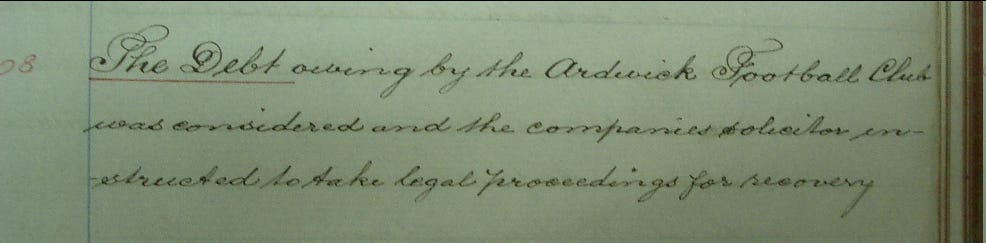 08 The Debt owing by the Ardwick Football Club
was considered and the companies solicitor in-
-structed to take legal proceedings for recovery